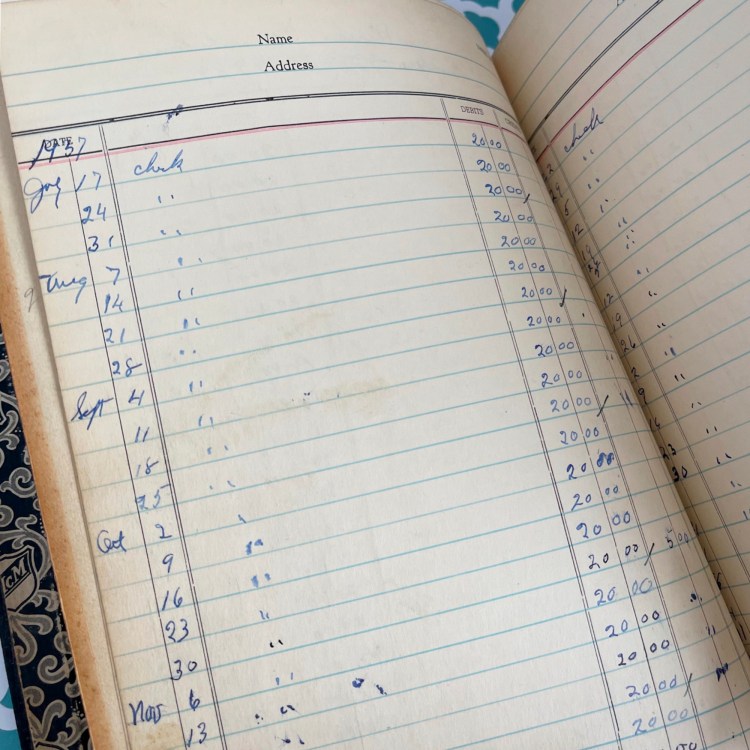 Name
Address
DATE DEBITS
1957
July 17 check 20 00
24 " 20 00
31 " 20 00
Aug 7 " 20 00
14 " 20 00
21 " 20 00
28 " 20 00
Sept 4 " 20 00
11 " 20 00
18 " 20 00
25 " 20 00
Oct 2 " 20 00
9 " 20 00
16 " 20 00
23 " 20 00
30 " 20 00
Nov 6 " 20 00
13 " 20 00
20 00
20 00
20 00
check
12
19
26
2
9
23
30
5 00
McM